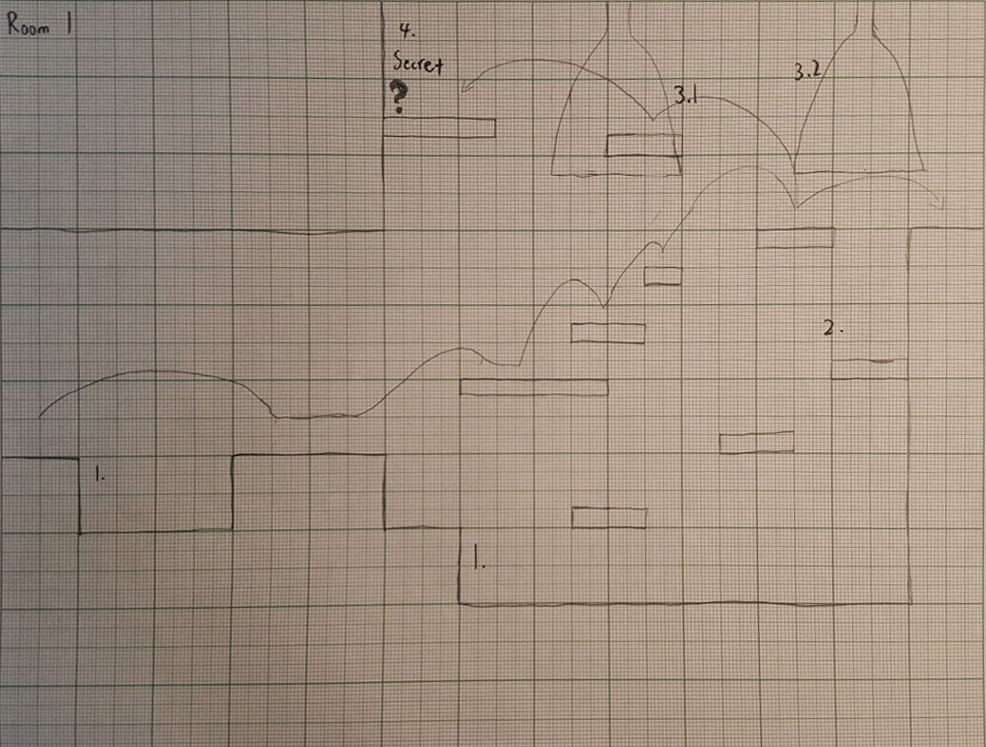 Room 1
4.
Secret
?
3.1
3.2
2.
1.
1.